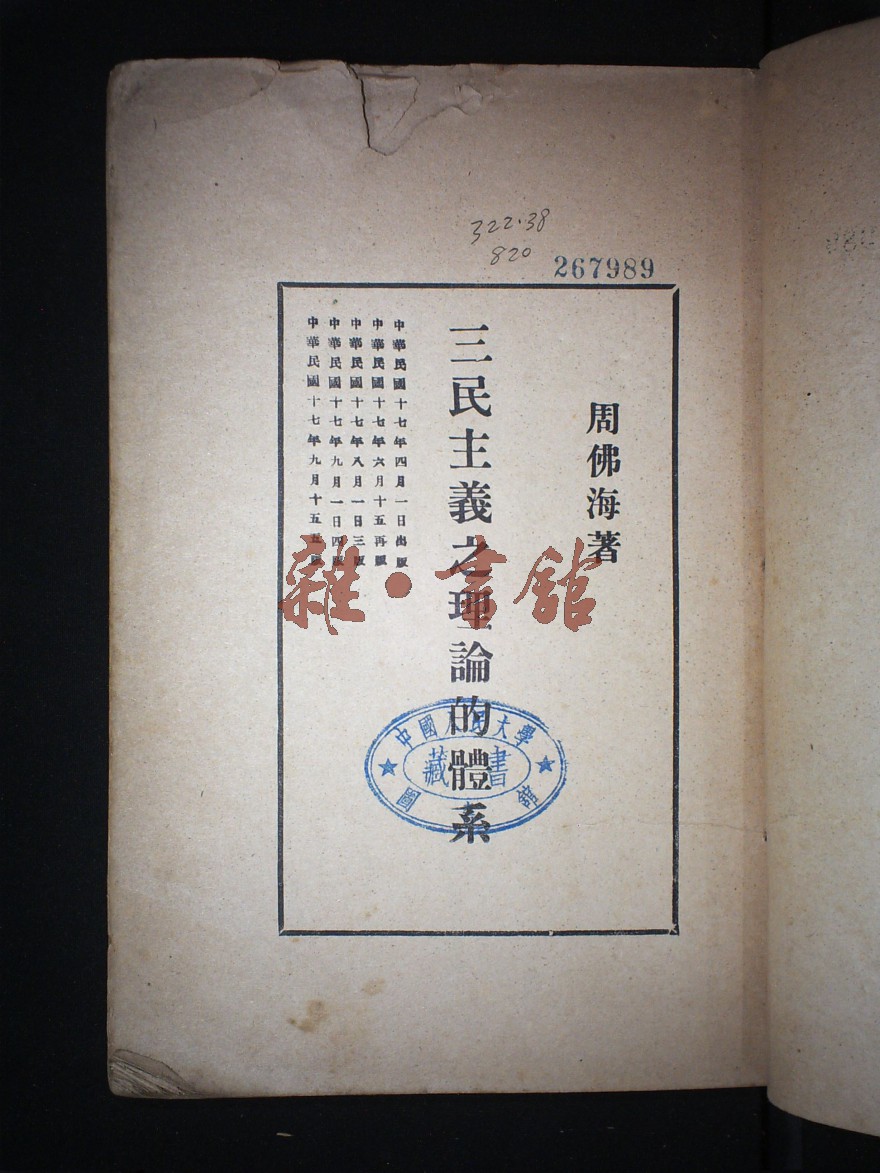 322.38
820
267989
周佛海著
三民主義之理論的體系
中華民國十七年四月一日出版
中華民國十七年六月十五再版
中華民國十七年八月一日三版
中華民國十七年九月一日四版
中華民國十七年九月十五五版
雜·書館
中國人民大學
藏書
圖 館